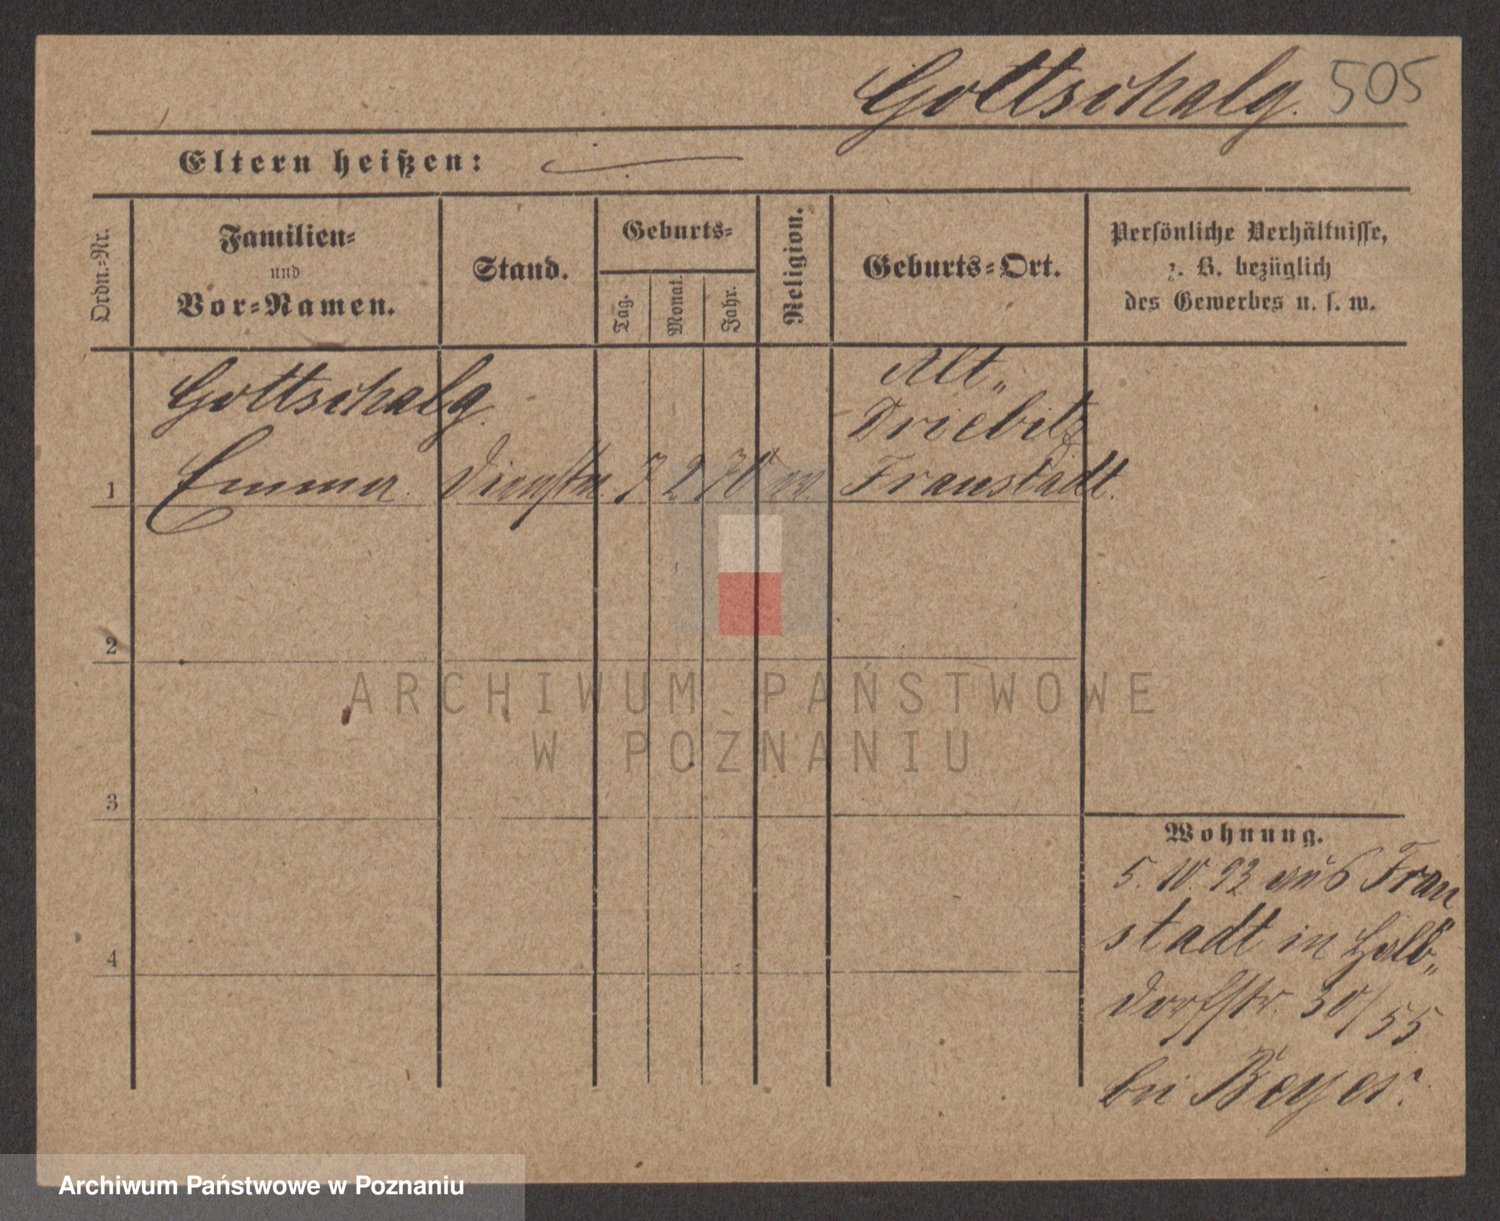 Gottschalg. 505
Eltern heißen:
Ordn.-Nr.
Familien-
und
Vor-Namen.
Stand.
Geburts-
Tag.
Monat.
Jahr.
Religion.
Geburts-Ort.
Persönliche Verhältnisse,
z. B. bezüglich
des Gewerbes u. s. w.
Gottschalg.
Alt-
Driebitz
1 Emma. Dienstm. 7 2 70 Fraustadt.
2
ARCHIWUM PAŃSTWOWE
W POZNANIU
3
Wohnung.
5.10.93 aus Frau
stadt in Halb-
4
dorfstr. 30/55
bei Beyer.
Archiwum Państwowe w Poznaniu